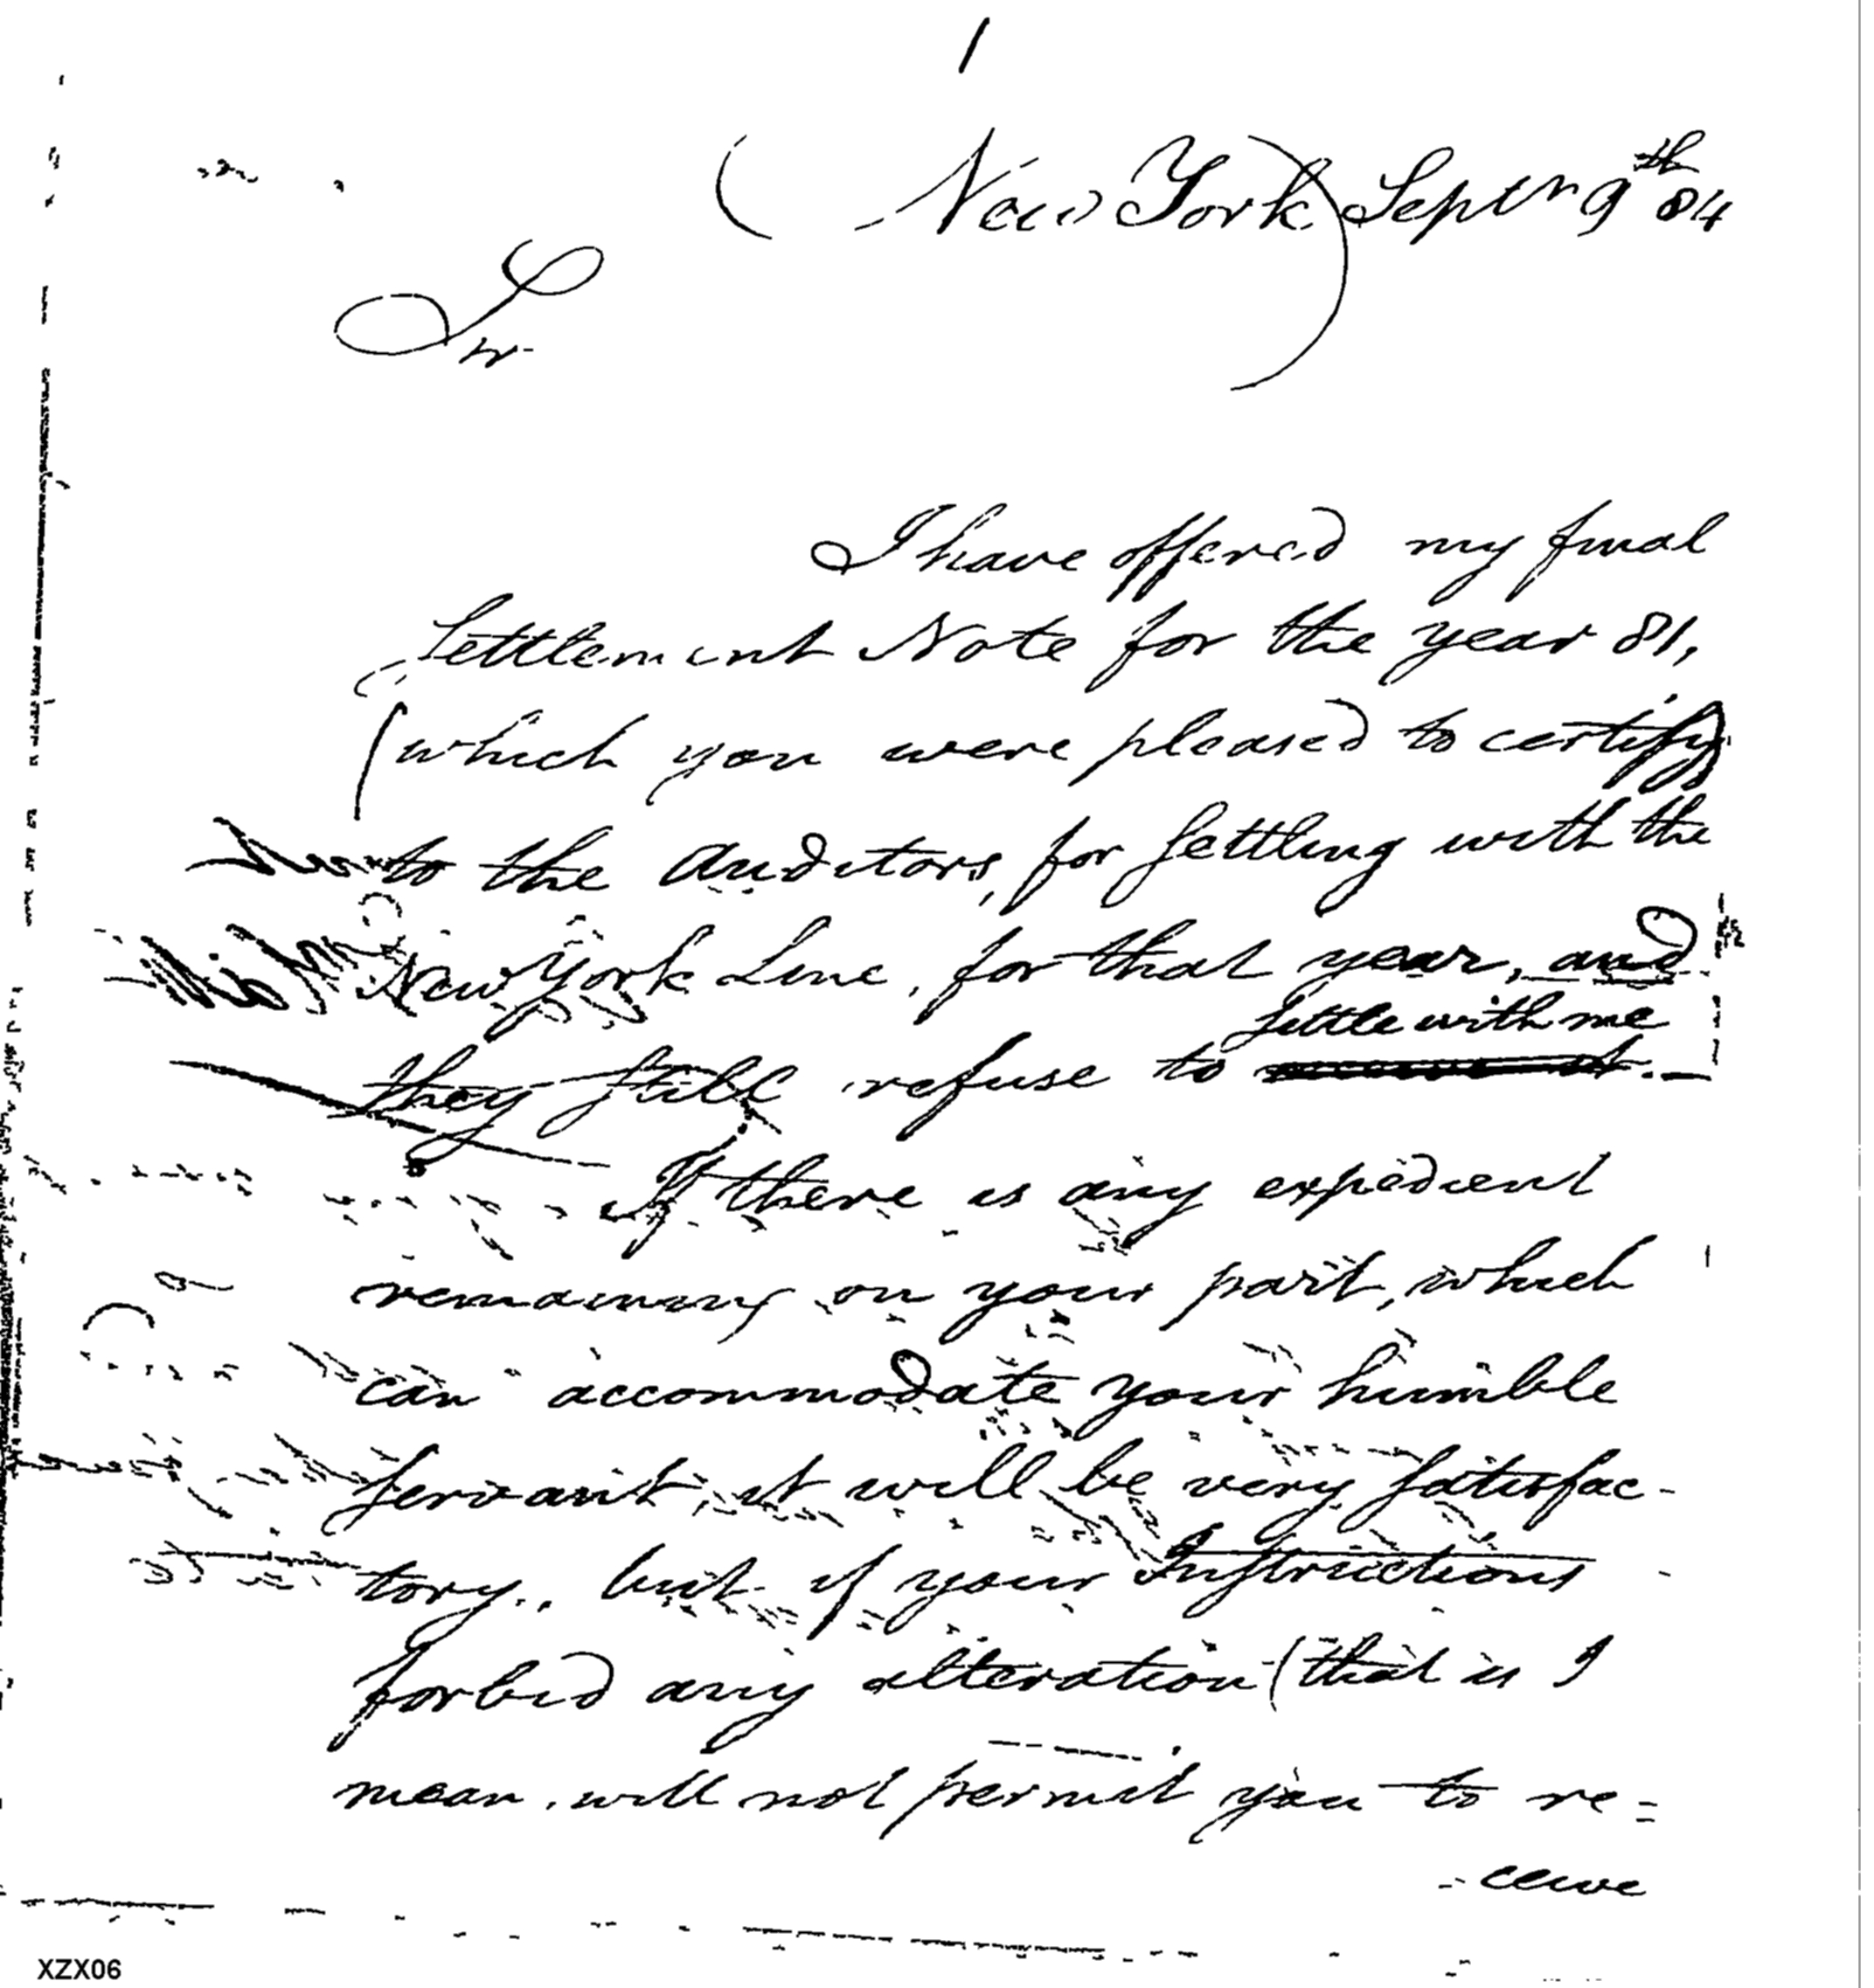 New York Septmr 9th 84
Sir-
I have offered my final
Settlement Note for the year 81,
(which you were pleased to certify
to the Auditors, for settling with the
New York Line, for that year, and
settle with me
they still refuse to
If there is any expedient
remaining on your part, which
can accommodate your humble
servant, it will be very satisfac-
tory, but if your Instructions
forbid any alteration (that is I
mean, will not permit you to re=
-ceive
XZX06